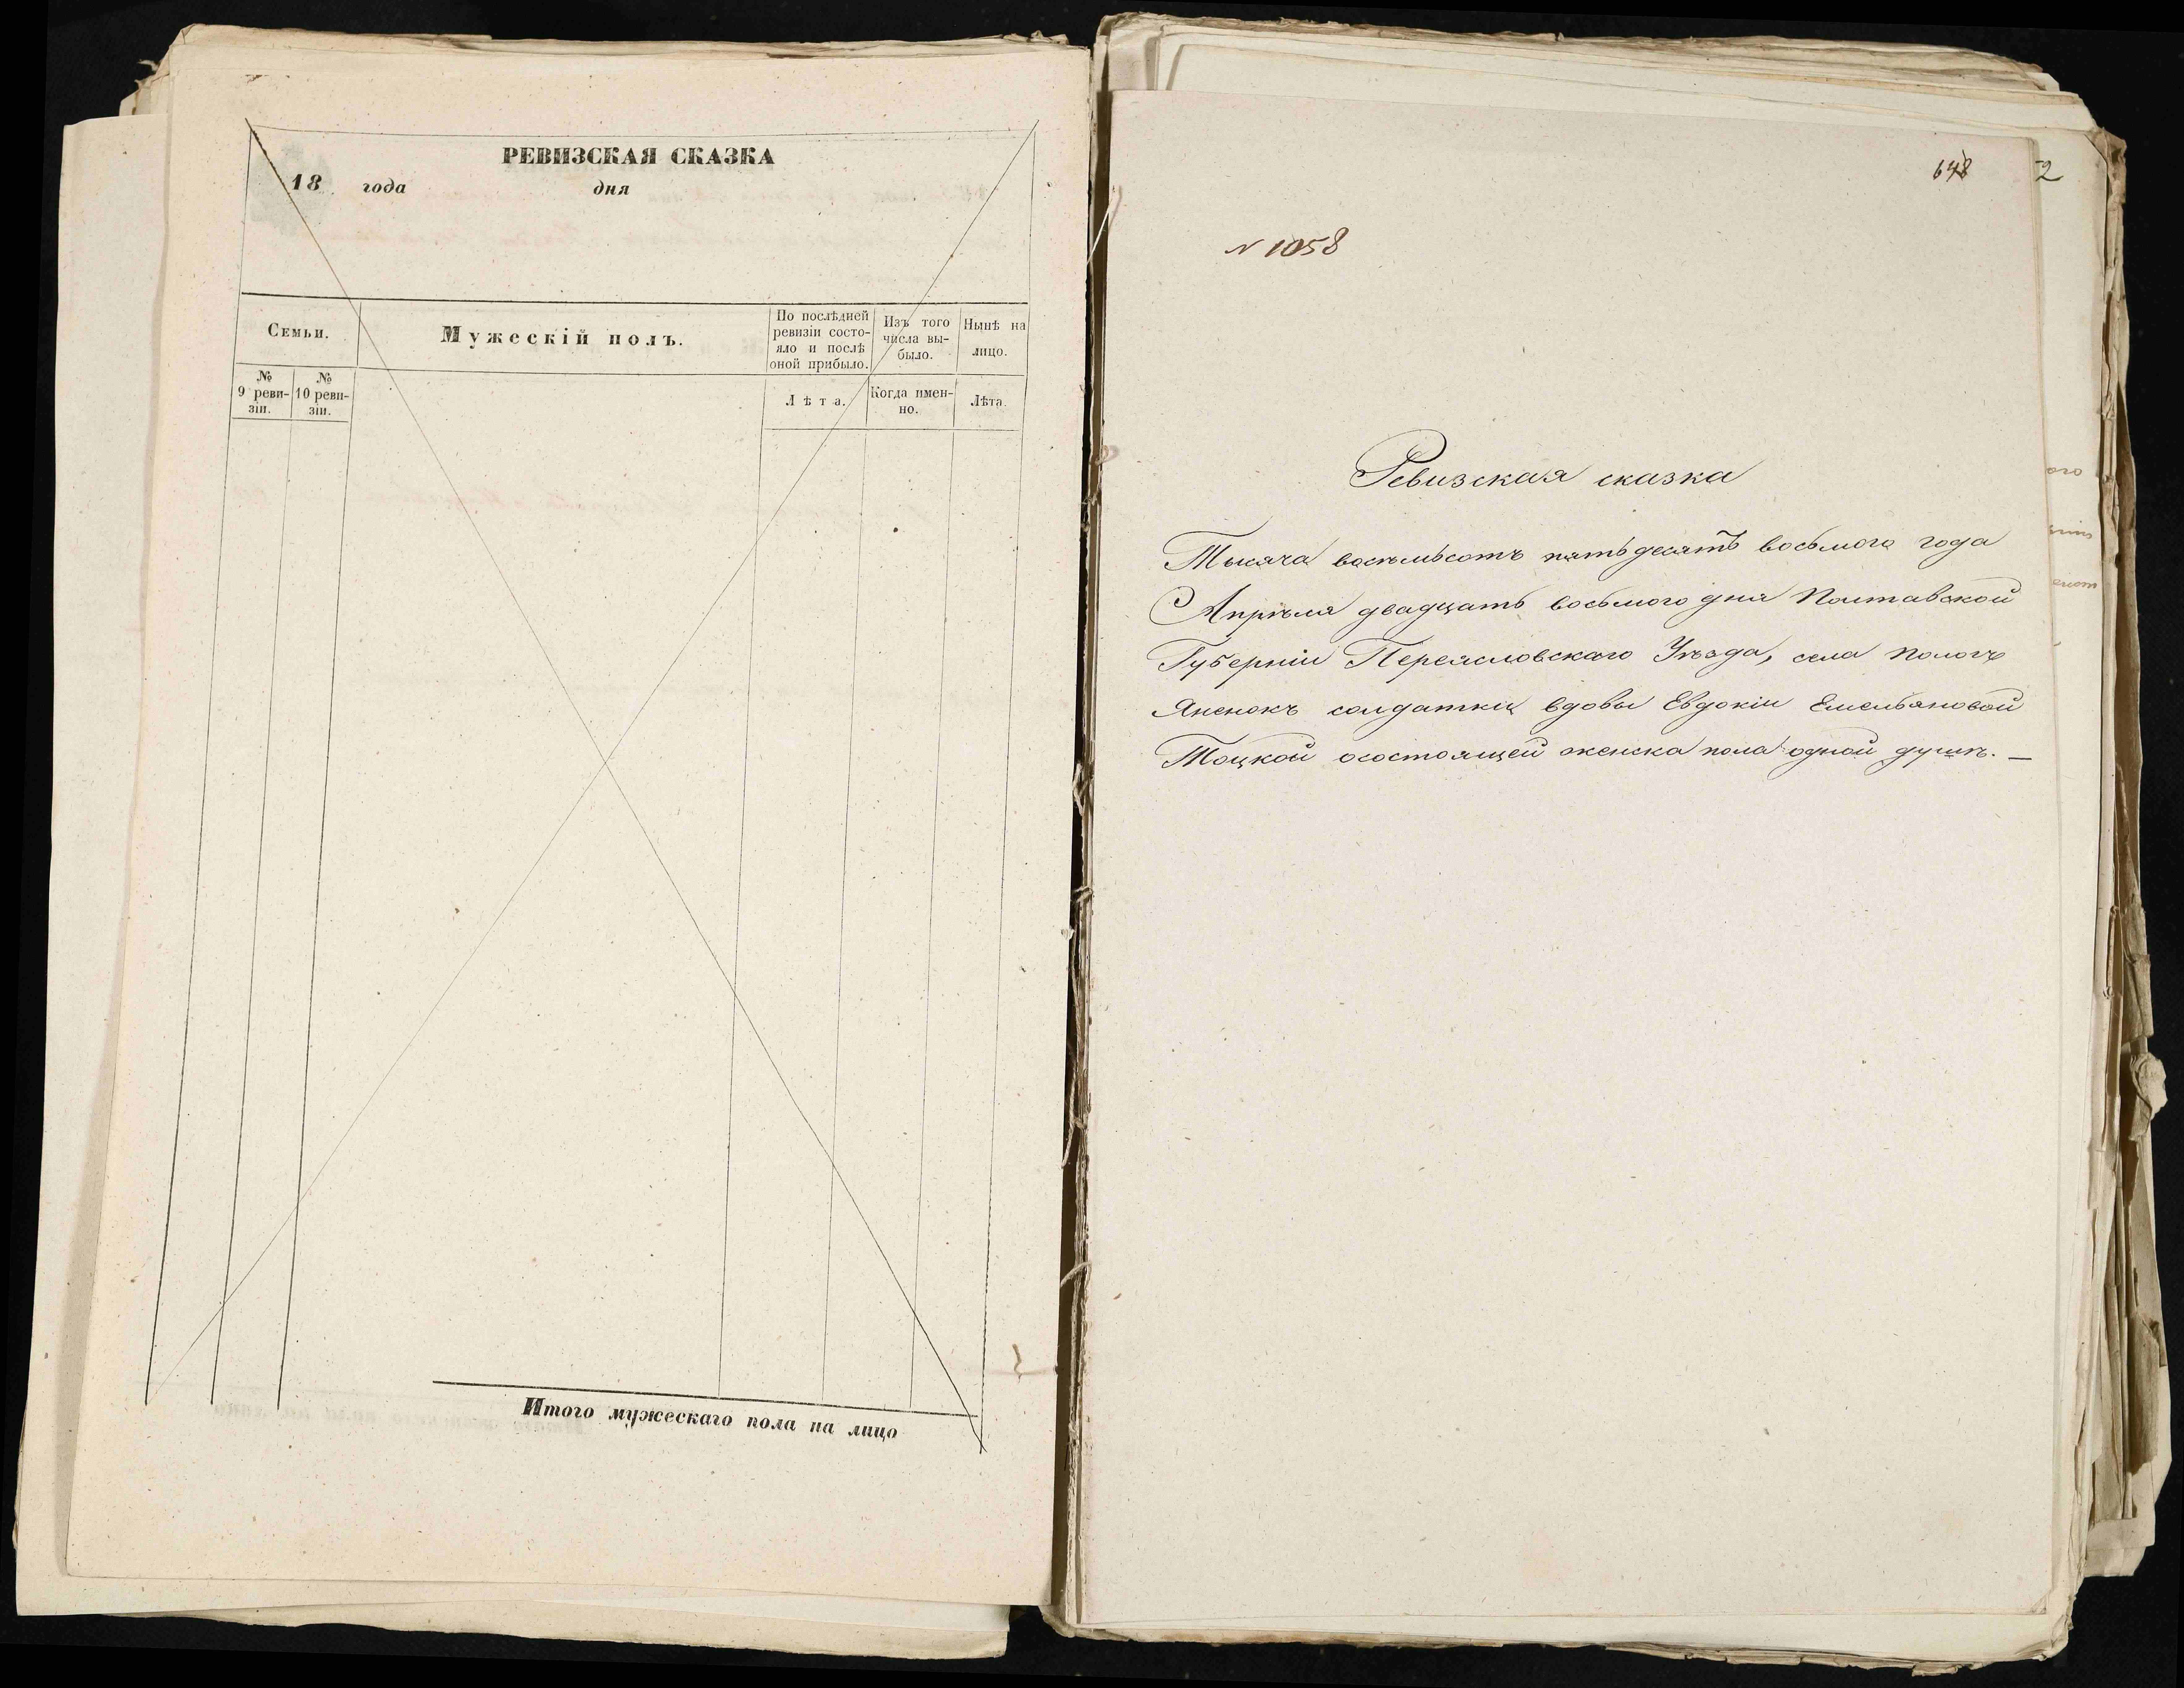 РЕВИЗСКАЯ СКАЗКА
18 года дня
Семьи.
Мужескій полъ.
По послѣдней
ревизіи состо-
яло и послѣ
оной прибыло.
Изъ того
числа вы-
было.
Нынѣ на
лицо.
№
9 реви-
зіи.
№
10 реви-
зіи.
Лѣта.
Когда имен-
но.
Лѣта.
Итого мужескаго пола на лицо
648
2
N 1058
Ревизская сказка
Тысяча восемьсотъ пятьдесятъ восьмого года
Апрѣля двадцать восьмого дня Полтавской
Губерніи Переясловскаго Уѣзда, села Пологъ
Яненокъ солдатки вдовы Евдокіи Емельяновой
Тоцкой осостоящей женска пола одной душѣ. —
ого